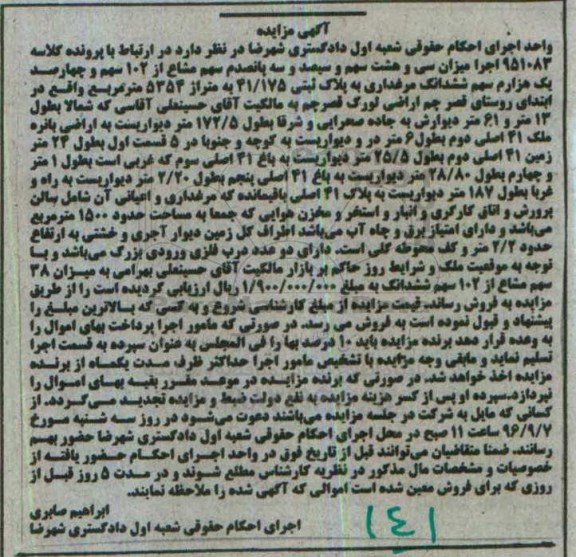 آگهی مزایده
واحد اجرای احکام حقوقی شعبه اول دادگستری شهرضا در نظر دارد در ارتباط با پرونده کلاسه
۹۵۱۰۸۳ اجرا میزان سی و هشت سهم و سیصد و سه پانصدم سهم مشاع از ۱۰۲ سهم و چهارصد
یک هزارم سهم ششدانگ مرغداری به پلاک ثبتی ۴۱/۱۷۵ به متراژ ۵۳۵۴ مترمربع واقع در
ابتدای روستای قصر چم اراضی لورک قصرچم به مالکیت آقای حسینعلی آقاسی که شمالا بطول
۱۳ متر و ۶۱ متر دیوارش به جاده صحرایی و شرقا بطول ۱۷۲/۵ متر دیواریست به اراضی بانره
ملک ۴۱ اصلی دوم بطول ۶ متر در و دیواریست به کوچه و جنوبا در ۵ قسمت اول بطول ۲۴ متر
زمین ۴۱ اصلی دوم بطول ۲۵/۵ متر دیواریست به باغ ۴۱ اصلی سوم که غربی است بطول ۱ متر
و چهارم بطول ۲۸/۸۰ متر دیواریست به باغ ۴۱ اصلی پنجم بطول ۲/۲۰ متر دیواریست به راه و
غربا بطول ۱۸۷ متر دیواریست به پلاک ۴۱ اصلی باقیمانده که مرغداری و اعیانی آن شامل سالن
پرورش و اتاق کارگری و انبار و استخر و مخزن هوایی که جمعا به مساحت حدود ۱۵۰۰ مترمربع
می‌باشد و دارای امتیاز برق و چاه آب می‌باشد اطراف کل زمین دیوار آجری و خشتی به ارتفاع
حدود ۲/۲ متر و کف محوطه کلی است. دارای دو عدد درب فلزی ورودی بزرگ می‌باشد و با
توجه به موقعیت ملک و شرایط روز حاکم بر بازار مالکیت آقای حسینعلی بهرامی به میزان ۳۸
سهم مشاع از ۱۰۲ سهم ششدانگ به مبلغ ۱/۹۰۰/۰۰۰/۰۰۰ ریال ارزیابی گردیده است را از طریق
مزایده به فروش رساند. قیمت مزایده از مبلغ کارشناسی شروع و به کسی که بالاترین مبلغ را
پیشنهاد و قبول نموده است به فروش می رسد. در صورتی که مامور اجرا پرداخت بهای اموال را
به وعده قرار دهد برنده مزایده باید ۱۰ درصد بها را فی المجلس به عنوان سپرده به قسمت اجرا
تسلیم نماید و مابقی وجه مزایده با تشخیص مامور اجرا حداکثر ظرف مدت یکماه از برنده
مزایده اخذ خواهد شد. در صورتی که برنده مزایده در موعد مقرر بقیه بهای اموال را
نپردازد، سپرده او پس از کسر هزینه مزایده به نفع دولت ضبط و مزایده تجدید می‌گردد. از
کسانی که مایل به شرکت در جلسه مزایده می‌باشند دعوت می‌شود در روز سه شنبه مورخ
۹۶/۹/۷ ساعت ۱۱ صبح در محل اجرای احکام حقوقی شعبه اول دادگستری شهرضا حضور بهم
رسانند. ضمنا متقاضیان می‌توانند قبل از تاریخ فوق در واحد اجرای احکام حضور یافته از
خصوصیات و مشخصات مال مذکور در نظریه کارشناس مطلع شوند و در مدت ۵ روز قبل از
روزی که برای فروش معین شده است اموالی که آگهی شده را ملاحظه نمایند.
ابراهیم صابری
اجرای احکام حقوقی شعبه اول دادگستری شهرضا
۱۴۱